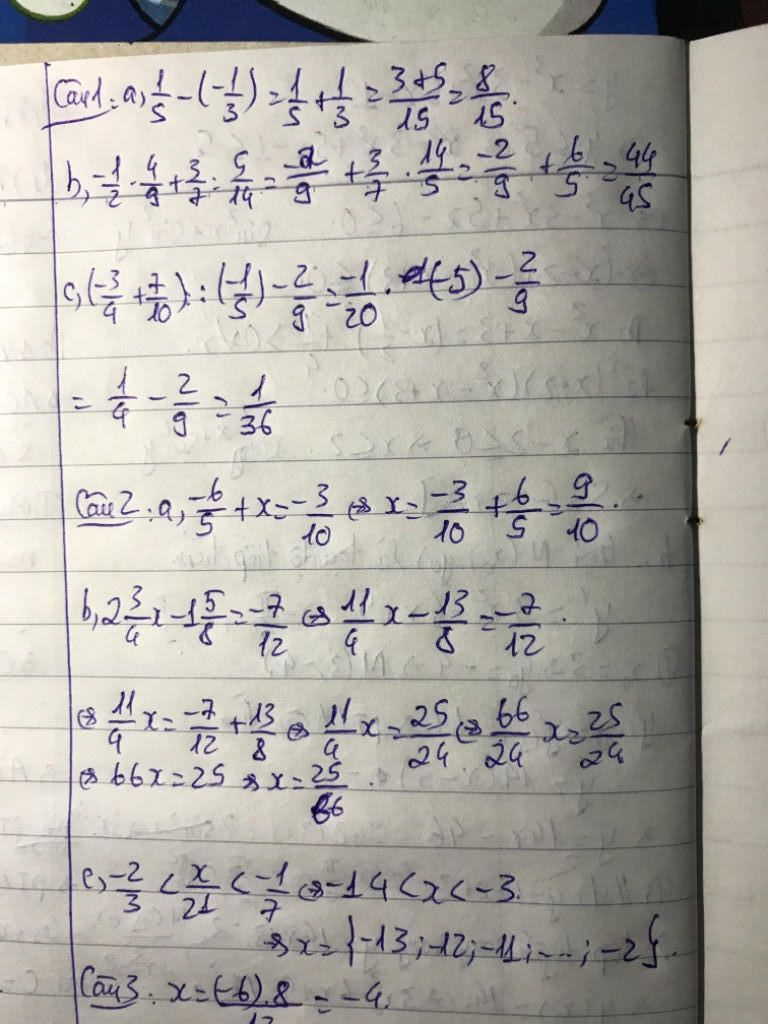 Câu 1: a, 1/5 - (-1/3) = 1/5 + 1/3 = (3+5)/15 = 8/15.
b, -1/2 . 4/9 + 3/7 : 5/14 = -2/9 + 3/7 . 14/5 = -2/9 + 6/5 = 44/45
c, (-3/4 + 7/10) : (-1/5) - 2/9 = -1/20 . (-5) - 2/9
= 1/4 - 2/9 = 1/36
Câu 2: a, -6/5 + x = -3/10 ⇔ x = -3/10 + 6/5 = 9/10.
b, 2 3/4 x - 1 5/8 = -7/12 ⇔ 11/4 x - 13/8 = -7/12.
⇔ 11/4 x = -7/12 + 13/8 ⇔ 11/4 x = 25/24 ⇔ 66/24 x = 25/24
⇔ 66x = 25 ⇒ x = 25/66.
c, -2/3 < x/21 < -1/7 ⇔ -14 < x < -3.
⇒ x = {-13; -12; -11; ...; -2}.
Câu 3: x = (-6).8/12 = -4.